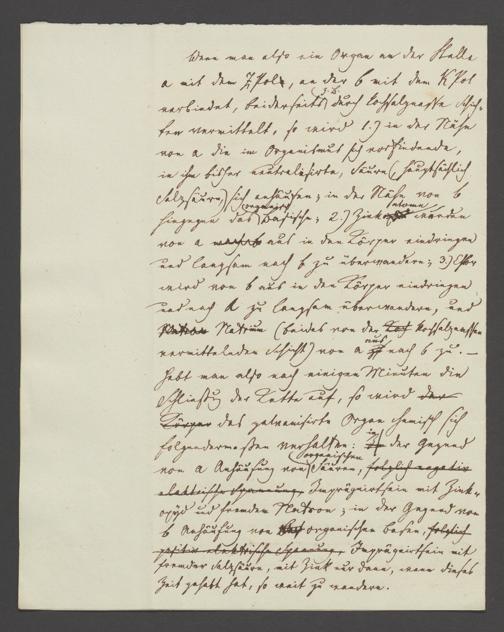 Wenn man also ein Organ an der Stelle
a mit dem Z Pol, an der b mit dem K Pol
verbindet, beiderseits z.B. durch kochsalznasse Schich-
ten vermittelt, so wird 1.) in der Nähe
von a die im Organismus sich vorfindende,
in ihm bisher neutralisirte, Säure (hauptsächlich
Salzsäure,) sich anhäufen; in der Nähe von b
hingegen das organisch Basische; 2.) Zinkatome werden
von a aus in den Körper eindringen
und langsam nach b zu überwandern; 3.) Chlor
wird von b aus in den Körper eindringen
und nach a zu langsam überwandern, und
Natrum (beides von der kochsalznassen
vermittelnden Schicht) von a aus nach b zu. —
Hebt man also nach einigen Minuten die
Schließung der Kette auf, so wird der
Körper das galvanisirte Organ chemisch sich
folgendermaßen verhalten: in der Gegend
von a Anhäufung von organischen Säuren, folglich negative
elektrische Spannung, Imprägnirtsein mit Zink-
oxyd und fremdem Natron; in der Gegend von
b Anhäufung von organischen Basen, folglich
positiv elektrische Spannung, Imprägnirtsein mit
fremder Salzsäure, mit Zink nur dann, wenn dieses
Zeit gehabt hat, so weit zu wandern.